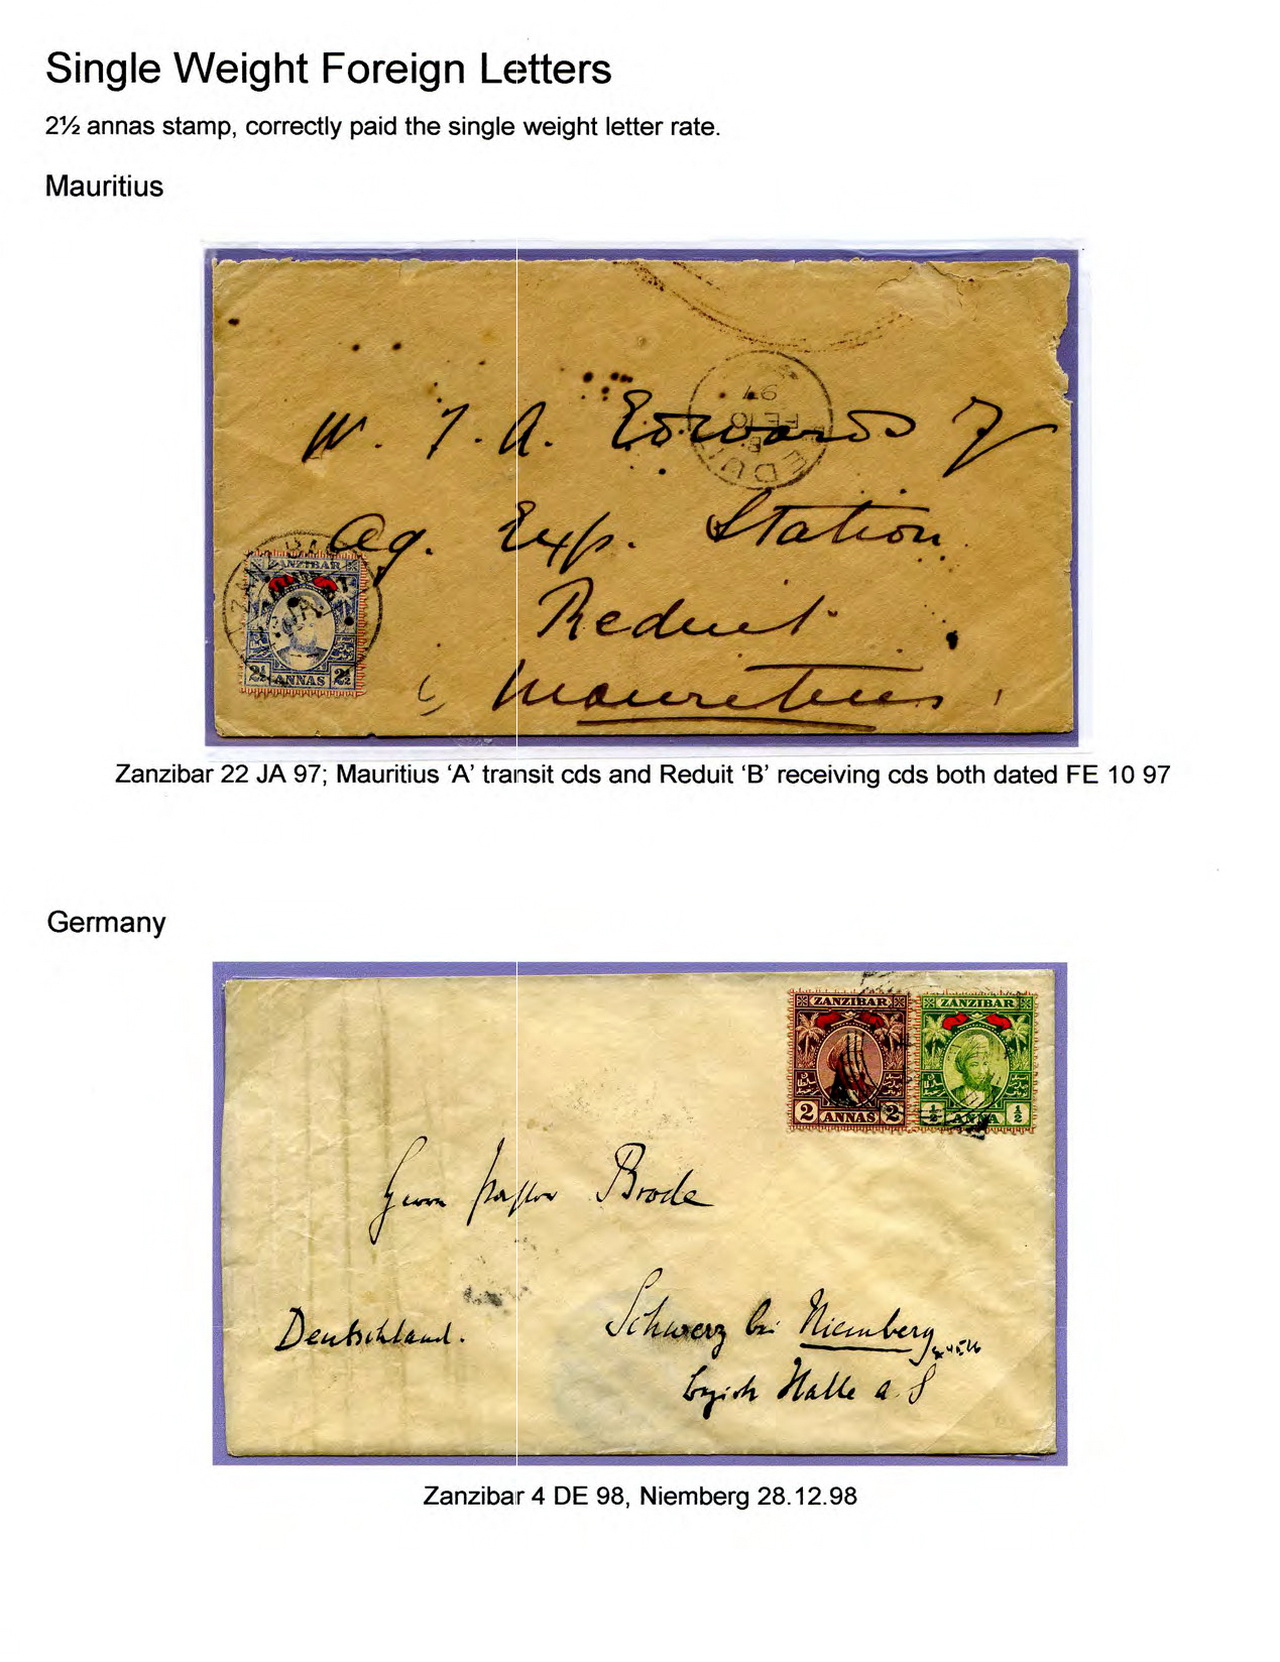 Single Weight Foreign Letters
2½ annas stamp, correctly paid the single weight letter rate.
Mauritius
REDUIT
B
FE 10
97
W. F. A. Edwards
Ag. Exp. Station
Reduit
Mauritius
ZANZIBAR
ZANZIBAR
2½ ANNAS 2½
Zanzibar 22 JA 97; Mauritius ‘A’ transit cds and Reduit ‘B’ receiving cds both dated FE 10 97
Germany
ZANZIBAR
2 ANNAS 2
ZANZIBAR
½ ANNA ½
Herrn Pastor Brode
Deutschland.
Schwerz bei Niemberg
bezirk Halle a. S
Zanzibar 4 DE 98, Niemberg 28.12.98